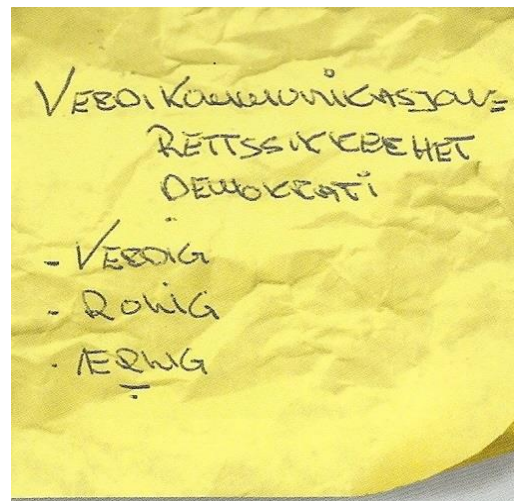 VERDIKOMMUNIKASJON=
RETTSSIKKERHET
DEMOKRATI
- VERDIG
- ROLIG
- ÆRLIG